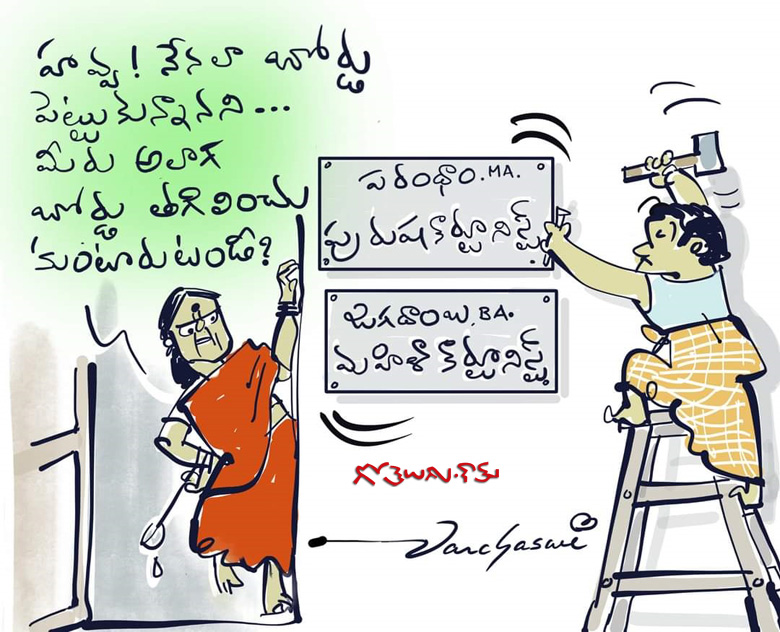 హవ్వ! నేనలా బోర్డు
పెట్టుకున్నానని...
మీరు అలాగ
బోర్డు తగిలించు
కుంటారుటండీ?
పరంధాం.MA.
పురుషకార్టూనిస్ట్
జగదాంబ,BA.
మహిళా కార్టూనిస్ట్
గోతెలుగు.కామ్
Varchaswi